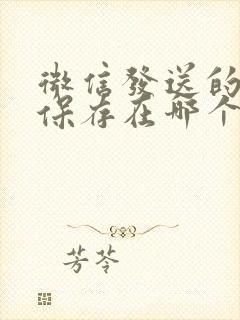 微信發送的
保存在哪个
芳苓